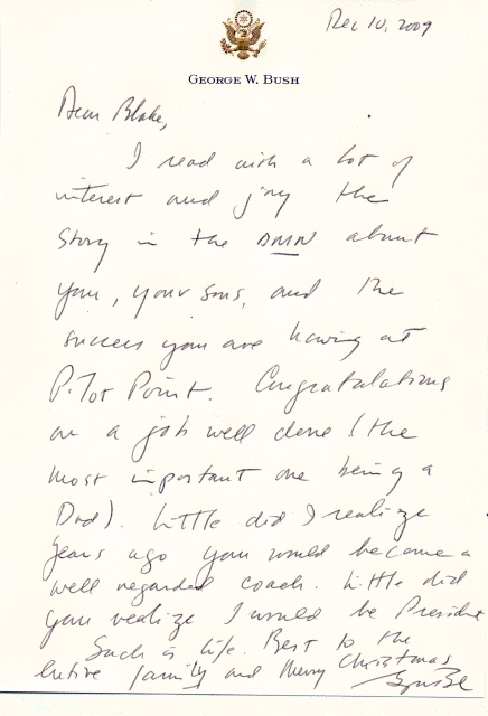 Dec 10, 2009
GEORGE W. BUSH
Dear Blake,
I read with a lot of
interest and joy the
story in the DMN about
you, your sons, and the
success you are having at
Pilot Point. Congratulations
on a job well done (the
most important one being a
Dad). Little did I realize
years ago you would become a
well regarded coach. Little did
you realize I would be President
Such is life. Best to the
entire family and Merry Christmas